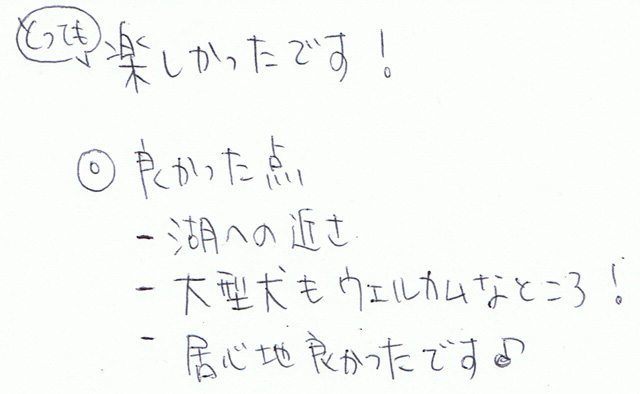 とっても楽しかったです！
◎ 良かった点
- 湖への近さ
- 大型犬もウェルカムなところ！
- 居心地良かったです♪